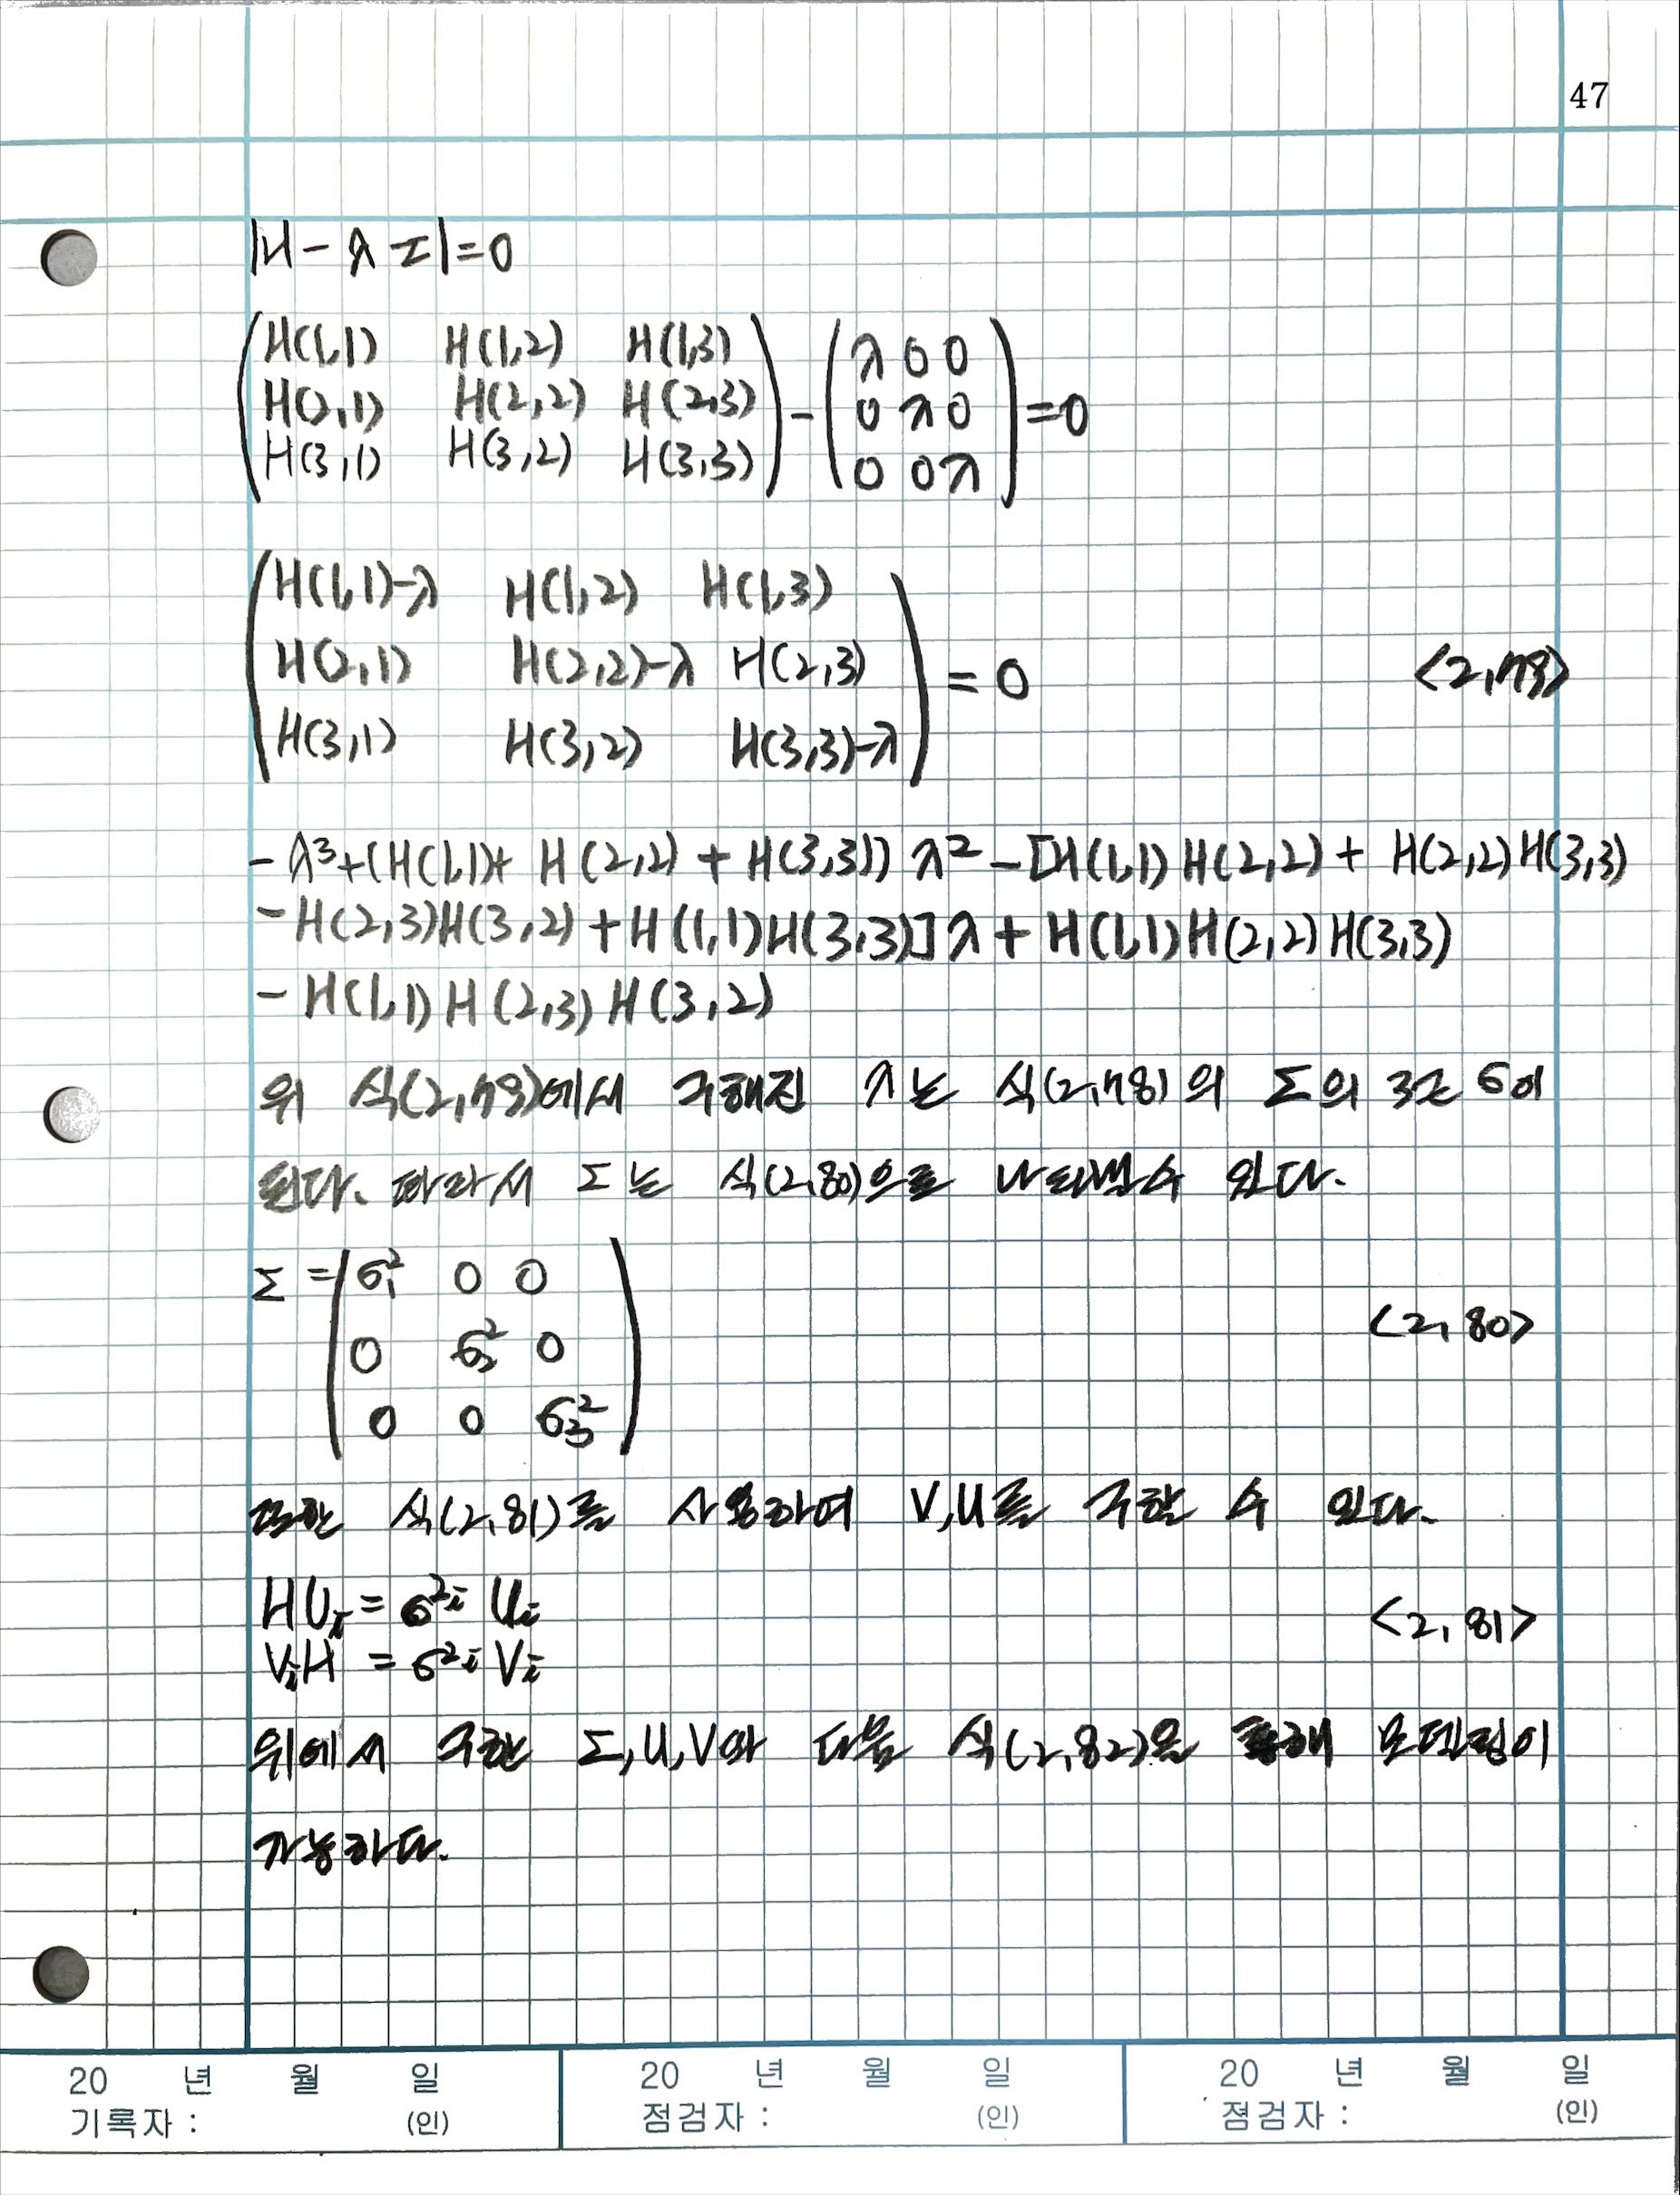 47
|H - λI| = 0
H(1,1) H(1,2) H(1,3) λ 0 0
H(2,1) H(2,2) H(2,3) - 0 λ 0 = 0
H(3,1) H(3,2) H(3,3) 0 0 λ
H(1,1)-λ H(1,2) H(1,3)
H(2,1) H(2,2)-λ H(2,3) = 0 <2,79>
H(3,1) H(3,2) H(3,3)-λ
-λ³+(H(1,1)+ H(2,2) + H(3,3)) λ² - [H(1,1) H(2,2) + H(2,2) H(3,3)
-H(2,3)H(3,2) + H(1,1)H(3,3)] λ + H(1,1) H(2,2) H(3,3)
- H(1,1) H(2,3) H(3,2)
위 식(2,79)에서 구해진 λ는 식(2,78)의 Σ의 근 σ이
된다. 따라서 Σ는 식(2,80)으로 나타낼수 있다.
Σ = σ₁² 0 0
0 σ₂² 0 <2,80>
0 0 σ₃²
또한 식(2,81)를 사용하여 V,U를 구할 수 있다.
HUᵢ = σ²ᵢ Uᵢ <2,81>
VᵢH = σ²ᵢ Vᵢ
위에서 구한 Σ,U,V와 다음 식(2,82)을 통해 모델링이
가능하다.
20 년 월 일 20 년 월 일 20 년 월 일
기록자 : (인) 점검자 : (인) 점검자 : (인)